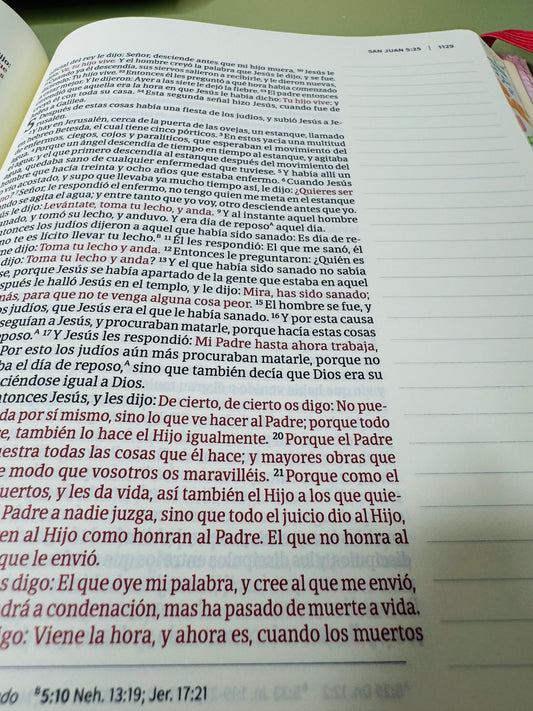 SAN JUAN 5:25 | 1129
cial del rey le dijo: Señor, desciende antes que mi hijo muera. 50 Jesús le
Ve, tu hijo vive. Y el hombre creyó la palabra que Jesús le dijo, y se fue.
uando ya él descendía, sus siervos salieron a recibirle, y le dieron nuevas,
Tu hijo vive. 52 Entonces él les preguntó a qué hora había comenzado
mejor. Y le dijeron: Ayer a las siete le dejó la fiebre. 53 El padre entonces
que aquella era la hora en que Jesús le había dicho: Tu hijo vive; y
él con toda su casa. 54 Esta segunda señal hizo Jesús, cuando fue de
a Galilea.
5 Después de estas cosas había una fiesta de los judíos, y subió Jesús a Je-
rusalén.
y hay en Jerusalén, cerca de la puerta de las ovejas, un estanque, llamado
en hebreo Betesda, el cual tiene cinco pórticos. 3 En estos yacía una multitud
de enfermos, ciegos, cojos y paralíticos, que esperaban el movimiento del
Porque un ángel descendía de tiempo en tiempo al estanque, y agitaba
agua; y el que primero descendía al estanque después del movimiento del
agua, quedaba sano de cualquier enfermedad que tuviese. 5 Y había allí un
hombre que hacía treinta y ocho años que estaba enfermo. 6 Cuando Jesús
vio acostado, y supo que llevaba ya mucho tiempo así, le dijo: ¿Quieres ser
7 Señor, le respondió el enfermo, no tengo quien me meta en el estanque
do se agita el agua; y entre tanto que yo voy, otro desciende antes que yo.
ús le dijo: Levántate, toma tu lecho, y anda. 9 Y al instante aquel hombre
anado, y tomó su lecho, y anduvo. Y era día de reposo A aquel día.
ntonces los judíos dijeron a aquel que había sido sanado: Es día de re-
no te es lícito llevar tu lecho. B 11 Él les respondió: El que me sanó, él
me dijo: Toma tu lecho y anda. 12 Entonces le preguntaron: ¿Quién es
dijo: Toma tu lecho y anda? 13 Y el que había sido sanado no sabía
se, porque Jesús se había apartado de la gente que estaba en aquel
spués le halló Jesús en el templo, y le dijo: Mira, has sido sanado;
más, para que no te venga alguna cosa peor. 15 El hombre se fue, y
os judíos, que Jesús era el que le había sanado. 16 Y por esta causa
seguían a Jesús, y procuraban matarle, porque hacía estas cosas
eposo. A 17 Y Jesús les respondió: Mi Padre hasta ahora trabaja,
Por esto los judíos aun más procuraban matarle, porque no
ba el día de reposo, A sino que también decía que Dios era su
ciéndose igual a Dios.
ntonces Jesús, y les dijo: De cierto, de cierto os digo: No pue-
da por sí mismo, sino lo que ve hacer al Padre; porque todo
e, también lo hace el Hijo igualmente. 20 Porque el Padre
uestra todas las cosas que él hace; y mayores obras que
e modo que vosotros os maravilléis. 21 Porque como el
uertos, y les da vida, así también el Hijo a los que quie-
Padre a nadie juzga, sino que todo el juicio dio al Hijo,
en al Hijo como honran al Padre. El que no honra al
que le envió.
s digo: El que oye mi palabra, y cree al que me envió,
drá a condenación, mas ha pasado de muerte a vida.
igo: Viene la hora, y ahora es, cuando los muertos
do B 5:10 Neh. 13:19; Jer. 17:21